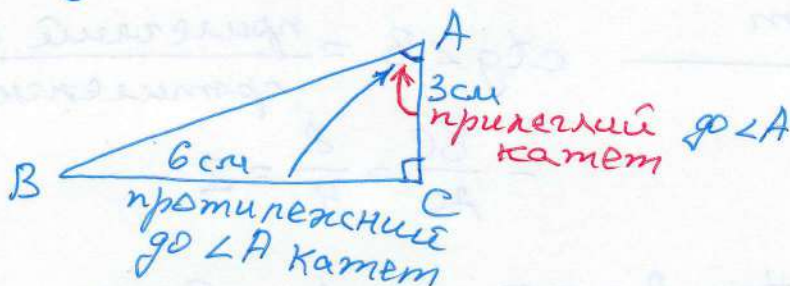 A
3 см
прилеглий до ∠A
катет
6 см
B
C
протилежний
до ∠A катет